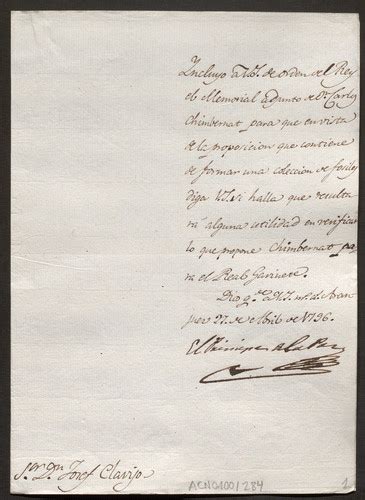 Incluyo a V.S. de orden del Rey
el Memorial adjunto de Dn. Carlos
Chimbernat para que en vista
de la proposicion que contiene
de formar una coleccion de fosiles
diga V.S. si halla que resulta
rá alguna utilidad en verificar
lo que propone Chimbernat pa
ra el Real Gavinete.
Dios gue. a V.S. ms. as. Aran
juez 27 de Abril de 1796.
El Principe de la Paz
Sor. Dn. Josef Clavijo
ACN0100/284
1